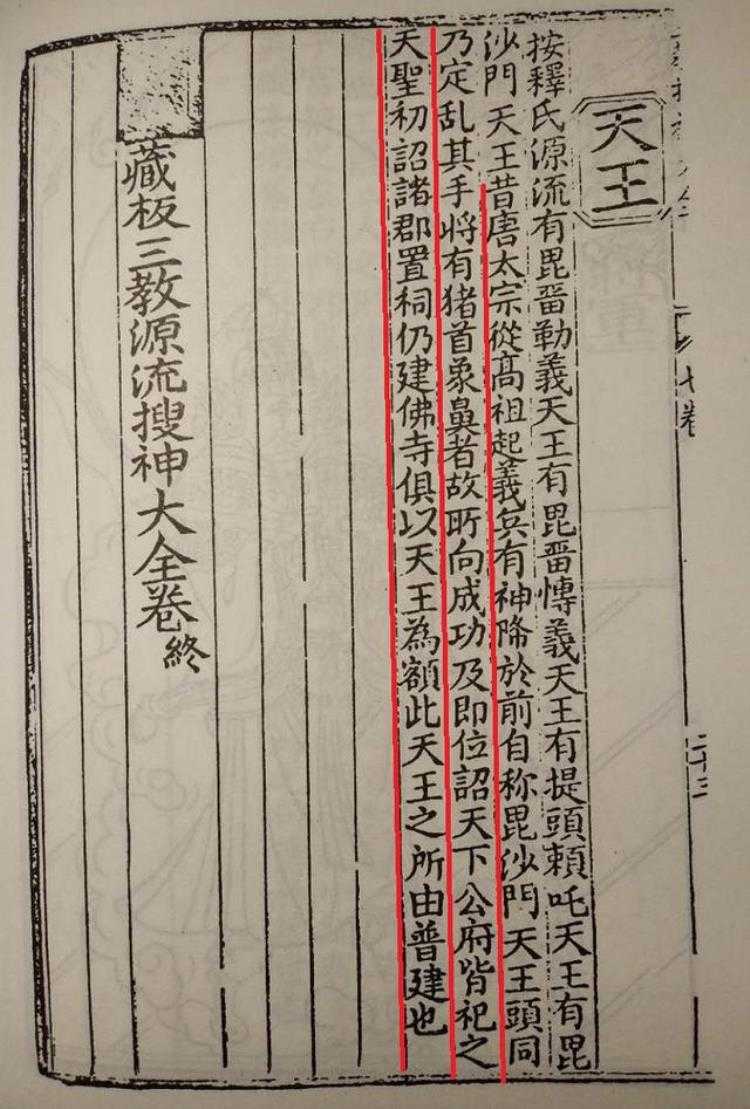 七卷
二十三
天王
按釋氏源流有毘畱勒義天王有毘畱愽義天王有提頭頼吒天王有毘
沙門天王昔唐太宗從髙祖起義兵有神降於前自称毘沙門天王頭同
乃定乱其手将有猪首象鼻者故所向成功及即位詔天下公府皆祀之
天聖初詔諸郡置祠仍建佛寺俱以天王為額此天王之所由普建也
藏板三教源流搜神大全卷終